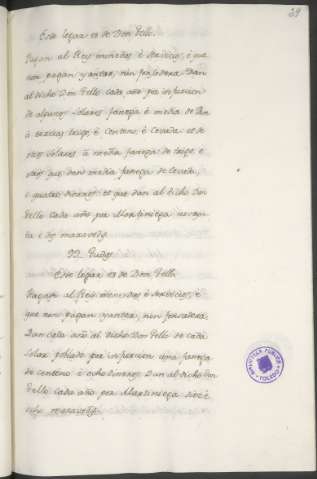 29
Este logar es de Don Tello.
Pagan al Rey monedas è servicios, è que
non pagan yantar, nin fonsadera. Dan
al dicho Don Tello cada año por infurcion
de algunos solares fanega è media de Pan
è tercias trigo, è centeno, è cevada et de
otros solares à media fanega de trigo è
otros que dan media fanega de cevada,
è quatro dineros. et que dan al dicho Don
Tello cada año por Martiniega
è dos maravedis.
Este logar es de Don Tello
Pagan al Rei monedas è servicios, è
que non pagan yantar, nin fonsadera.
Dan cada año al dicho Don Tello de cada
solar poblado por infurcion una fanega
de centeno è ocho dineros. Dan al dicho Don
Tello cada año por Martiniega
maravedis.
BIBLIOTECA PUBLICA
TOLEDO